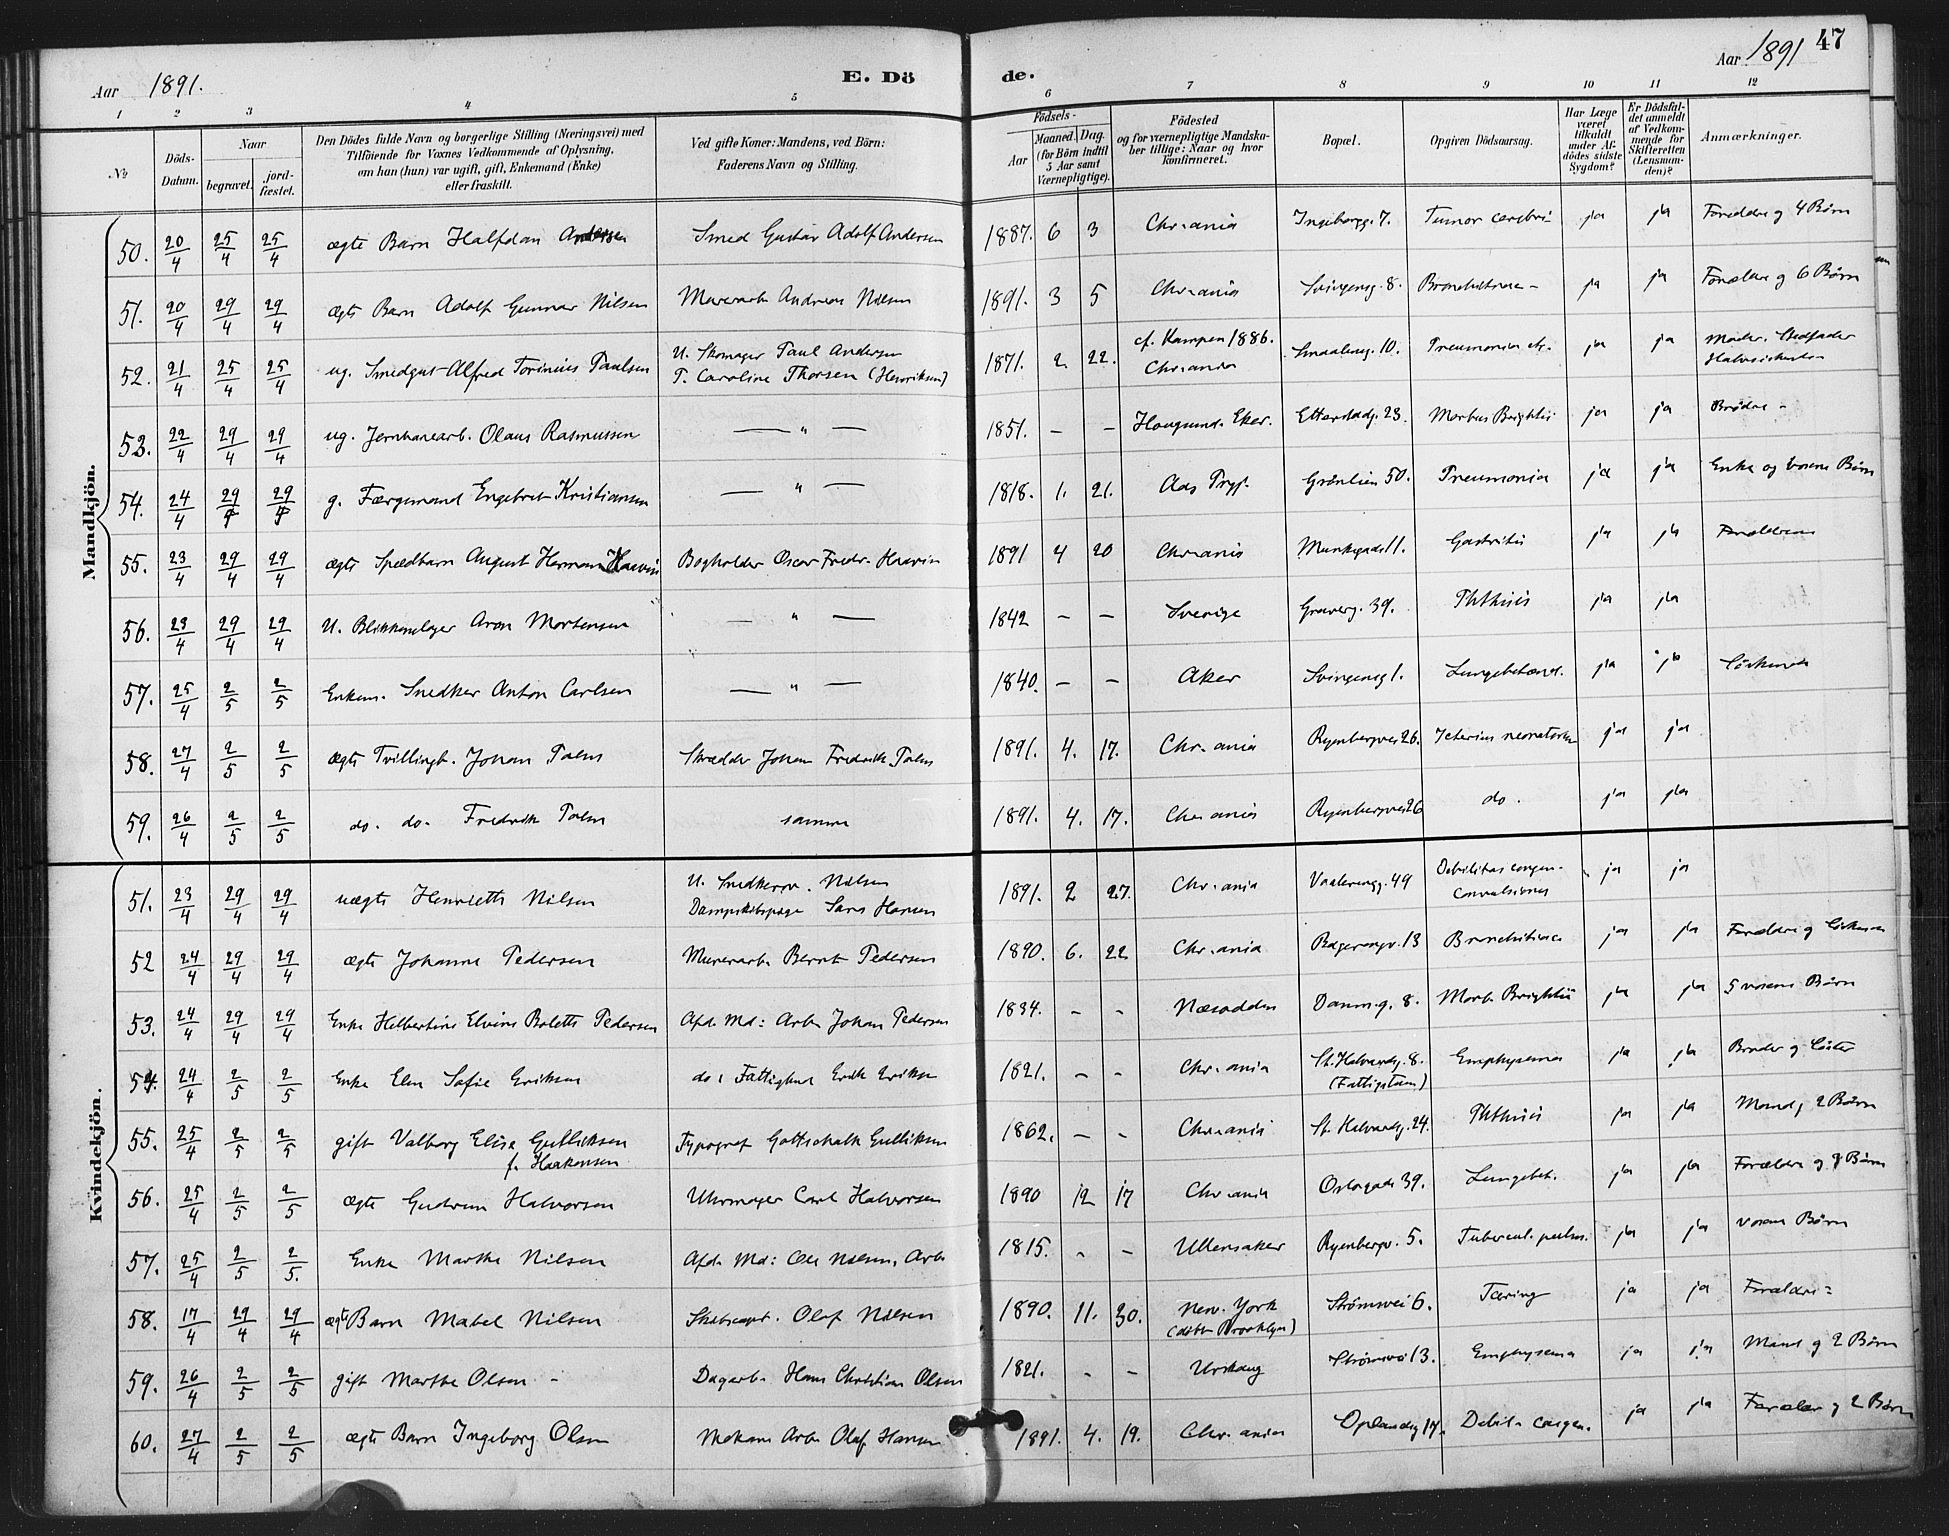 Aar 1891.
E. Dö
de.
Aar 1891
47
1 2 3 4 5 6 7 8 9 10 11 12
No
Döds-Datum.
Naar
begravet.
jord-fæstet.
Den Dödes fulde Navn og borgerlige Stilling (Næringsvei) med
Tilföiende for Voxnes Vedkommende af Oplysning,
om han (hun) var ugift, gift, Enkemand (Enke)
eller fraskilt.
Ved gifte Koner: Mandens, ved Börn:
Faderens Navn og Stilling.
Födsels-
Aar
Maaned. Dag.
(for Börn indtil 5 Aar samt Værnepligtige).
Födested
og for værnepligtige Mandskaber tillige: Naar og hvor konfirmeret.
Bopæl.
Opgiven Dödsaarsag.
Har Læge været tilkaldt under Afdödes sidste Sygdom?
Er Dödsfaldet anmeldt af Vedkommende for Skifteretten (Lensmanden)?
Anmærkninger.
Mandkjön.
50. 20/4 25/4 25/4 ægte Barn Halfdan Andersen Smed Gustav Adolf Andersen 1887. 6 3 Chr.ania Ingeborgg. 7. Tumor cerebri ja ja Forældre og 4 Børn
51. 20/4 29/4 29/4 ægte Barn Adolf Gunnar Nilsen Murerarb. Andreas Nilsen 1891. 3 5 Chr.ania Svingensg. 8. ja ja Forældre og 6 Børn
52. 21/4 25/4 25/4 ug. Smedgut Alfred Torinius Paulsen U. Skomager Paul Andersen
P. Caroline Thorsen (Henriksen) 1871. 2 22. cf. Kampen 1886.
Chr.ania Smaalensg. 10. Pneumonia ja ja Moder. Stedfader
53. 22/4 29/4 29/4 ug. Jernbanearb. Olaus Rasmussen — " — 1851. — — Hougsund. Eker. Etterstadg. 23. Morbus Brightii ja ja Brødre
54. 24/4 29/4 29/4 g. Færgemand Engebret Kristiansen — " — 1818. 1. 21. Aas Prgj. Grønlien 50. Pneumonia ja ja Enke og voxne Børn
55. 23/4 29/4 29/4 ægte Spædbarn August Herman Bogholder Oscar Fredr. 1891 4 20 Chr.ania Munkegade 11. Gastritis ja ja Forældrene
56. 23/4 29/4 29/4 U. Blikkenslager Aron Mortensen — " — 1842 — — Sverige Graverg. 39. Phthisis ja ja
57. 25/4 2/5 2/5 Enkem. Snedker Anton Carlsen — " — 1840. — — Aker Svingensg 1. Lungebetænd. ja ja Søskende
58. 27/4 2/5 2/5 ægte Tvillingb. Johan Palm Skrædder Johan Fredrik Palm 1891. 4. 17. Chr.ania Ryenbergvei 26. Icterius neonatorum ja ja
59. 26/4 2/5 2/5 do. do. Fredrik Palm samme 1891. 4. 17. Chr.ania Ryenbergvei 26 do. ja ja
Kvindekjön.
51. 23/4 29/4 29/4 uægte Henriette Nilsen U. Snedkersv. Nilsen
Dampskibspige Sara Hansen 1891. 2 27. Chr.ania Vaalerengg. 49 Debilitas congen.
Convulsiones ja ja
52 24/4 29/4 29/4 ægte Johanne Pedersen Murerarb. Bernt Pedersen 1890. 6. 22 Chr.ania 13 ja ja Forældre og Søskende
53. 24/4 29/4 29/4 Enke Helbertine Elvine Bolette Pedersen Afd. Md: Arb. Johan Pedersen 1834. - - Næsodden Danm.g. 8. Morb. Brightii ja ja 5 voxne Børn
54. 24/4 2/5 2/5 Enke Elen Sofie Eriksen do: Fattiglem Erik Eriksen 1821. - - Chr.ania St. Halvardg. 8.
(Fattigstam) Emphysema ja ja Broder og Søster
55. 25/4 2/5 2/5 gift Valborg Elise Gulliksen
f. Haakensen Typograf Gottschalk Gulliksen 1862. - - Chr.ania St. Halvardg. 24. Phthisis ja ja Mand, 2 Børn
56. 25/4 2/5 2/5 ægte Gudrun Halvorsen Uhrmager Carl Halvorsen 1890 12 17 Chr.ania Oslogade 39. Lungebet. ja ja Forældre og Børn
57. 25/4 2/5 2/5. Enke Marthe Nilsen Afd. Md: Ole Nilsen, Arb. 1815. - - Ullensaker Ryenbergv. 5. Tubercul. pulm. ja ja voxne Børn
58. 17/4 29/4 29/4 ægte Barn Mabel Nilsen Skibscapt. Olaf Nilsen 1890. 11. 30. New. York
(døbt Brooklyn) Strømsvei 6. Tæring ja ja Forældre
59. 26/4 2/5 2/5 gift Marthe Olsen Dagarb. Hans Christian Olsen 1821. - - Urskoug Strømsvei 13. Emphysema ja ja Mand og 2 Børn
60. 27/4 2/5 2/5 ægte Barn Ingeborg Olsen Mekan. Arb. Olaf Hansen 1891. 4. 19. Chr.ania Oplandsg 17. Debil. congen. ja ja Forældre og 2 Børn